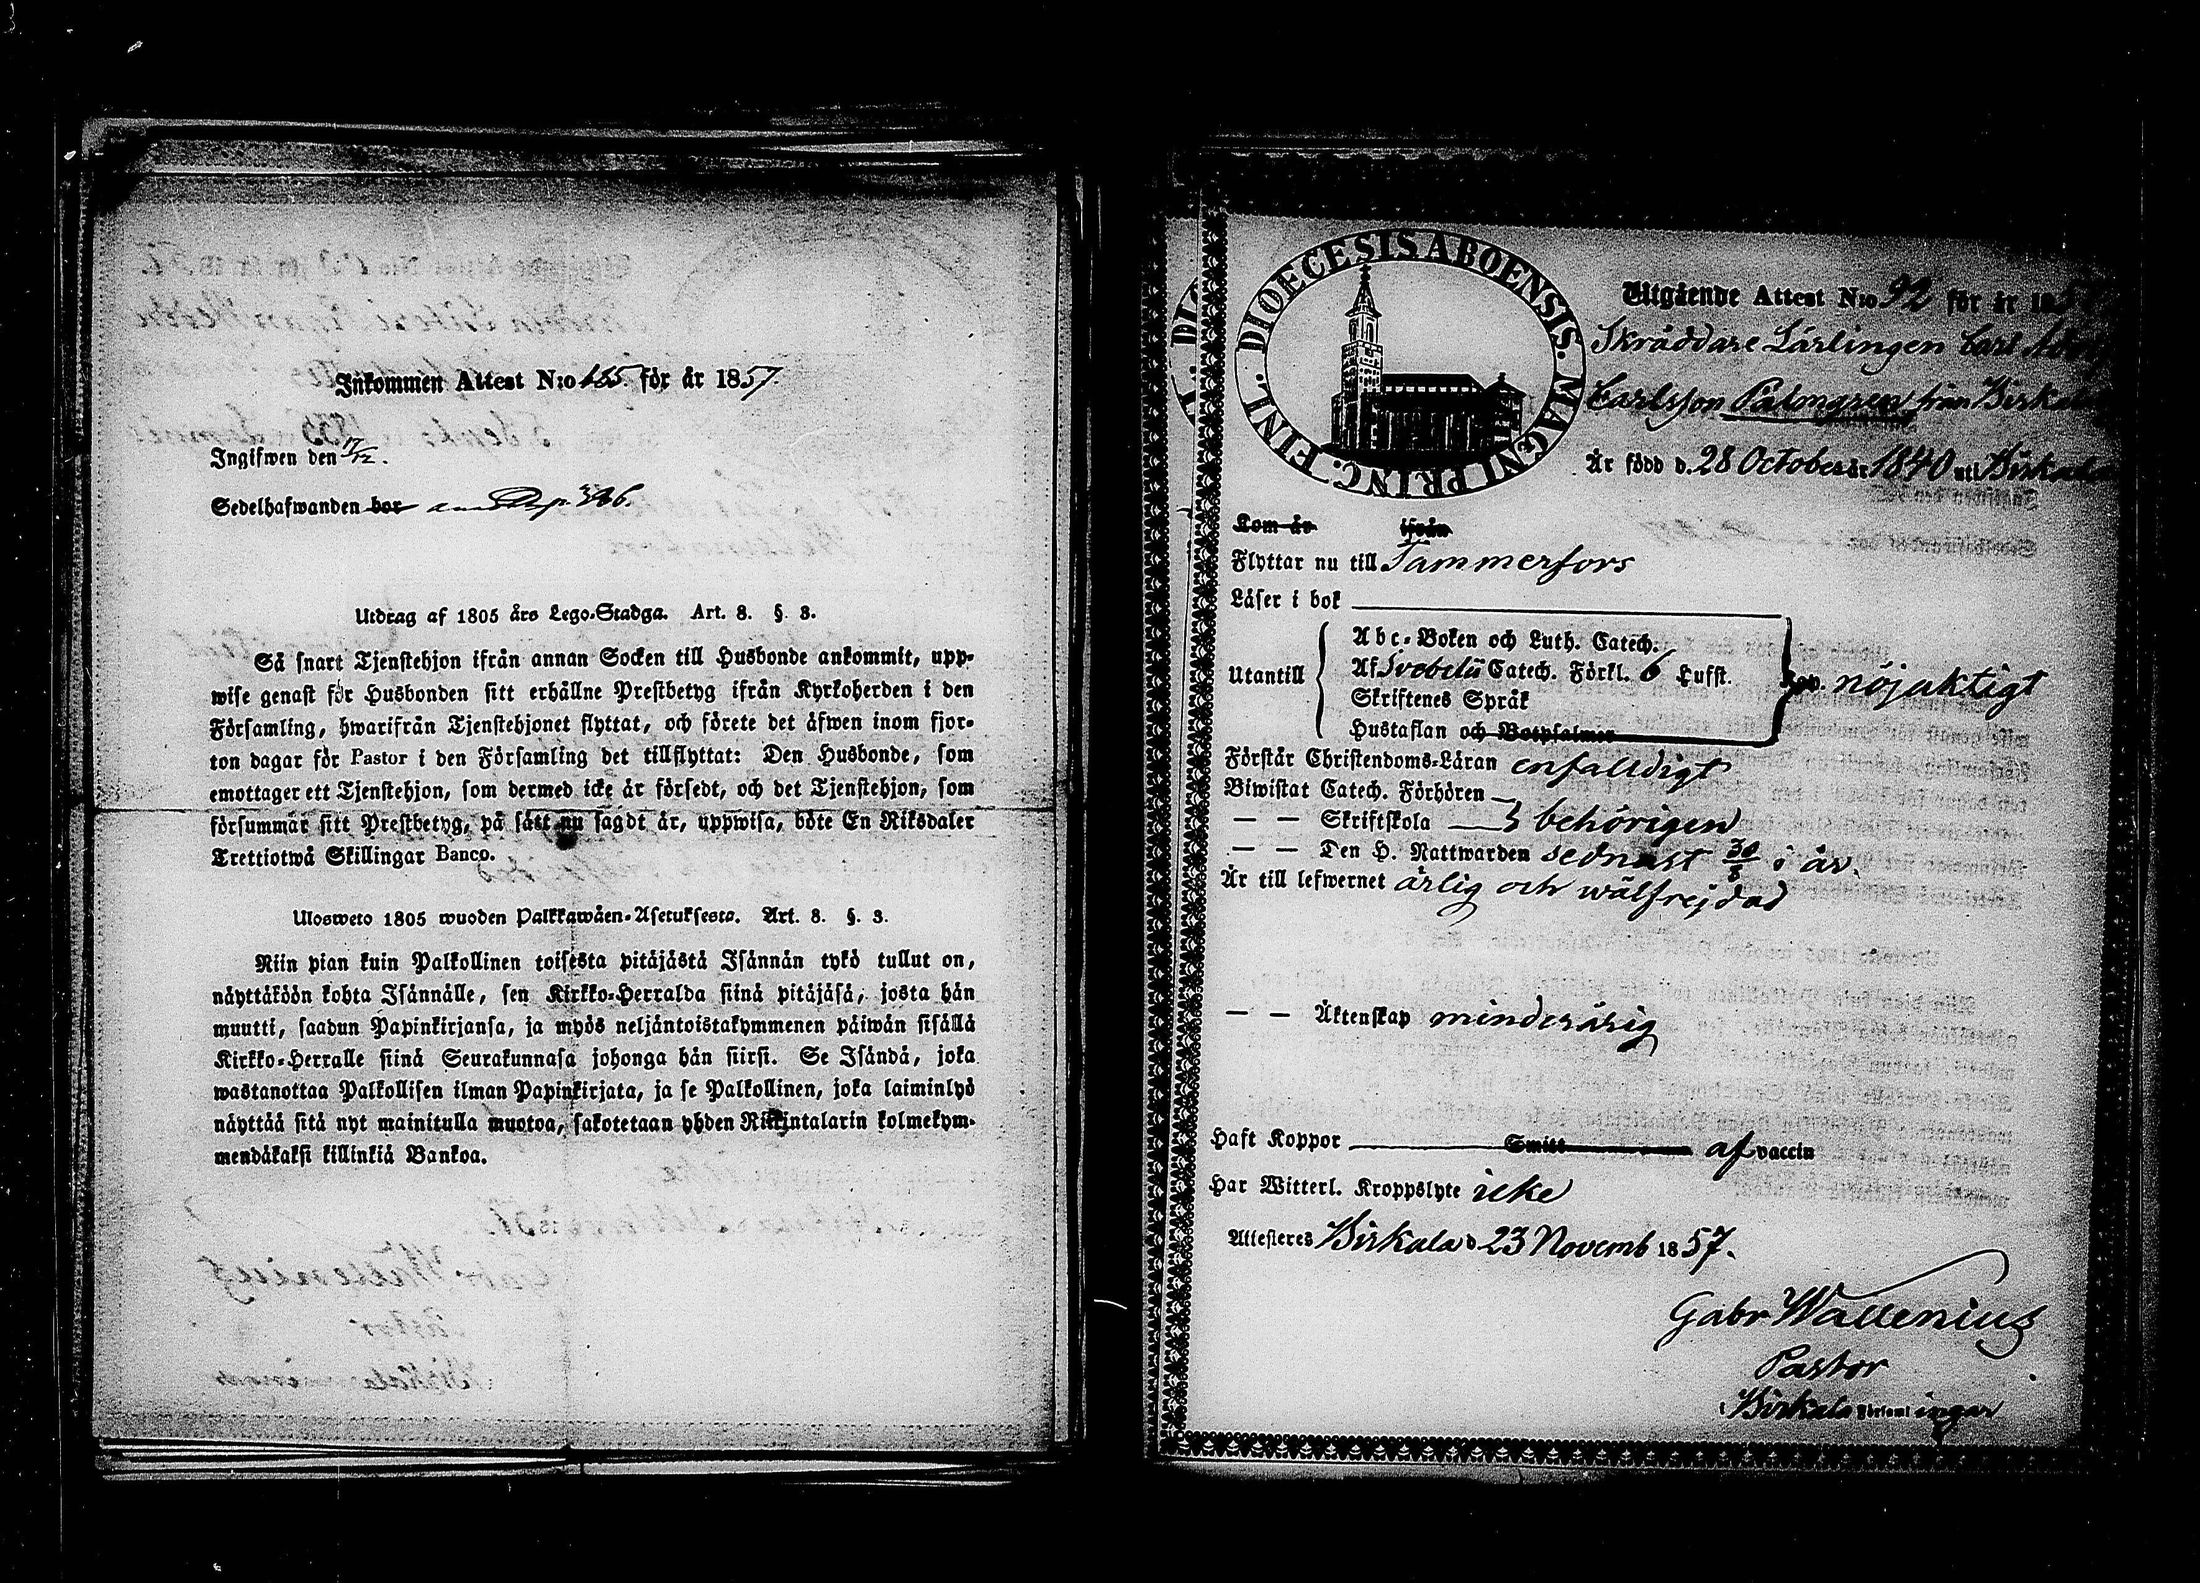 Inkommen Attest N:o 185. för år 1857.
Ingifwen den 17/12.
Sedelhafwanden bor
Utdrag af 1805 års Lego-Stadga. Art. 8. §. 3.
Så snart Tjenstehjon ifrån annan Socken till Husbonde ankommit, upp-
wise genast för Husbonden sitt erhållne Prestbetyg ifrån Kyrkoherden i den
Församling, hwarifrån Tjenstehjonet flyttat, och förete det äfwen inom fjor-
ton dagar för Pastor i den Församling det tillflyttat: Den Husbonde, som
emottager ett Tjenstehjon, som dermed icke är försedt, och det Tjenstehjon, som
försummar sitt Prestbetyg, på sätt nu sagdt är, uppwisa, böte En Riksdaler
Trettiotwå Skillingar Banco.
Ulosweto 1805 wuoden Palkkawäen-Asetuksesta. Art. 8. §. 3.
Niin pian kuin Palkollinen toisesta pitäjästä Isännän tykö tullut on,
näyttäköön kohta Isännälle, sen Kirkko-Herralda siinä pitäjäsä, josta hän
muutti, saadun Papinkirjansa, ja myös neljäntoistakymmenen päiwän sisällä
Kirkko-Herralle siinä Seurakunnasa johonga hän siirsi. Se Isändä, joka
wastanottaa Palkollisen ilman Papinkirjata, ja se Palkollinen, joka laiminlyö
näyttää sitä nyt mainitulla muotoa, sakotetaan yhden Riksintalarin kolmekym-
mendäkaksi killinkiä Bankoa.
DIOECESIS ABOENSIS. MAGNI PRINC. FINL.
Utgående Attest N:o 92 för år 1857
Skräddare Lärlingen Carl Adolf
Carlsson Palmgren från Birkala
Är född d. 28 October år 1840 uti Birkala
Kom år ifrån
Flyttar nu till Tammerfors
Läser i bok
Utantill
Abc-Boken och Luth. Catech.
Af Svebelii Catech. Förkl. 6 Hufst.
Skriftenes Språk
Hustaflan och Botpsalmer
nöjaktigt
Förstår Christendoms-Läran enfalldigt
Biwistat Catech. Förhören
— — Skriftskola behörigen
— — Den H. Nattwarden sednast 30/8 i år.
Är till lefwernet ärlig och wälfrejdad
— — Äktenskap minderårig
Haft Koppor Smitt af vaccin
Har Witterl. Kroppslyte icke
Attesteres Birkala d 23 Novemb 1857.
Gabr Wallenius
Pastor
i Birkala Församlingar